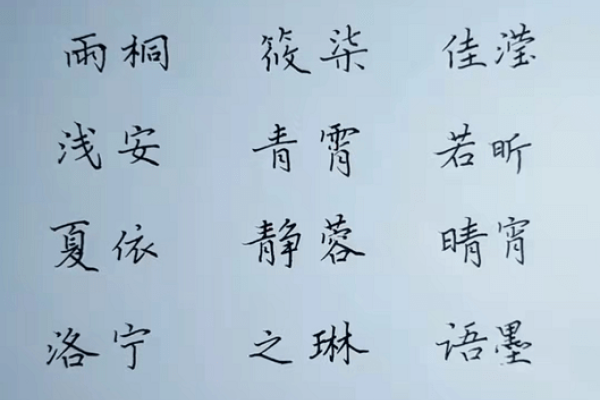 雨桐 筱柒 佳滢
浅安 青霄 若昕
夏依 静蓉 晴宵
洛宁 之琳 语墨